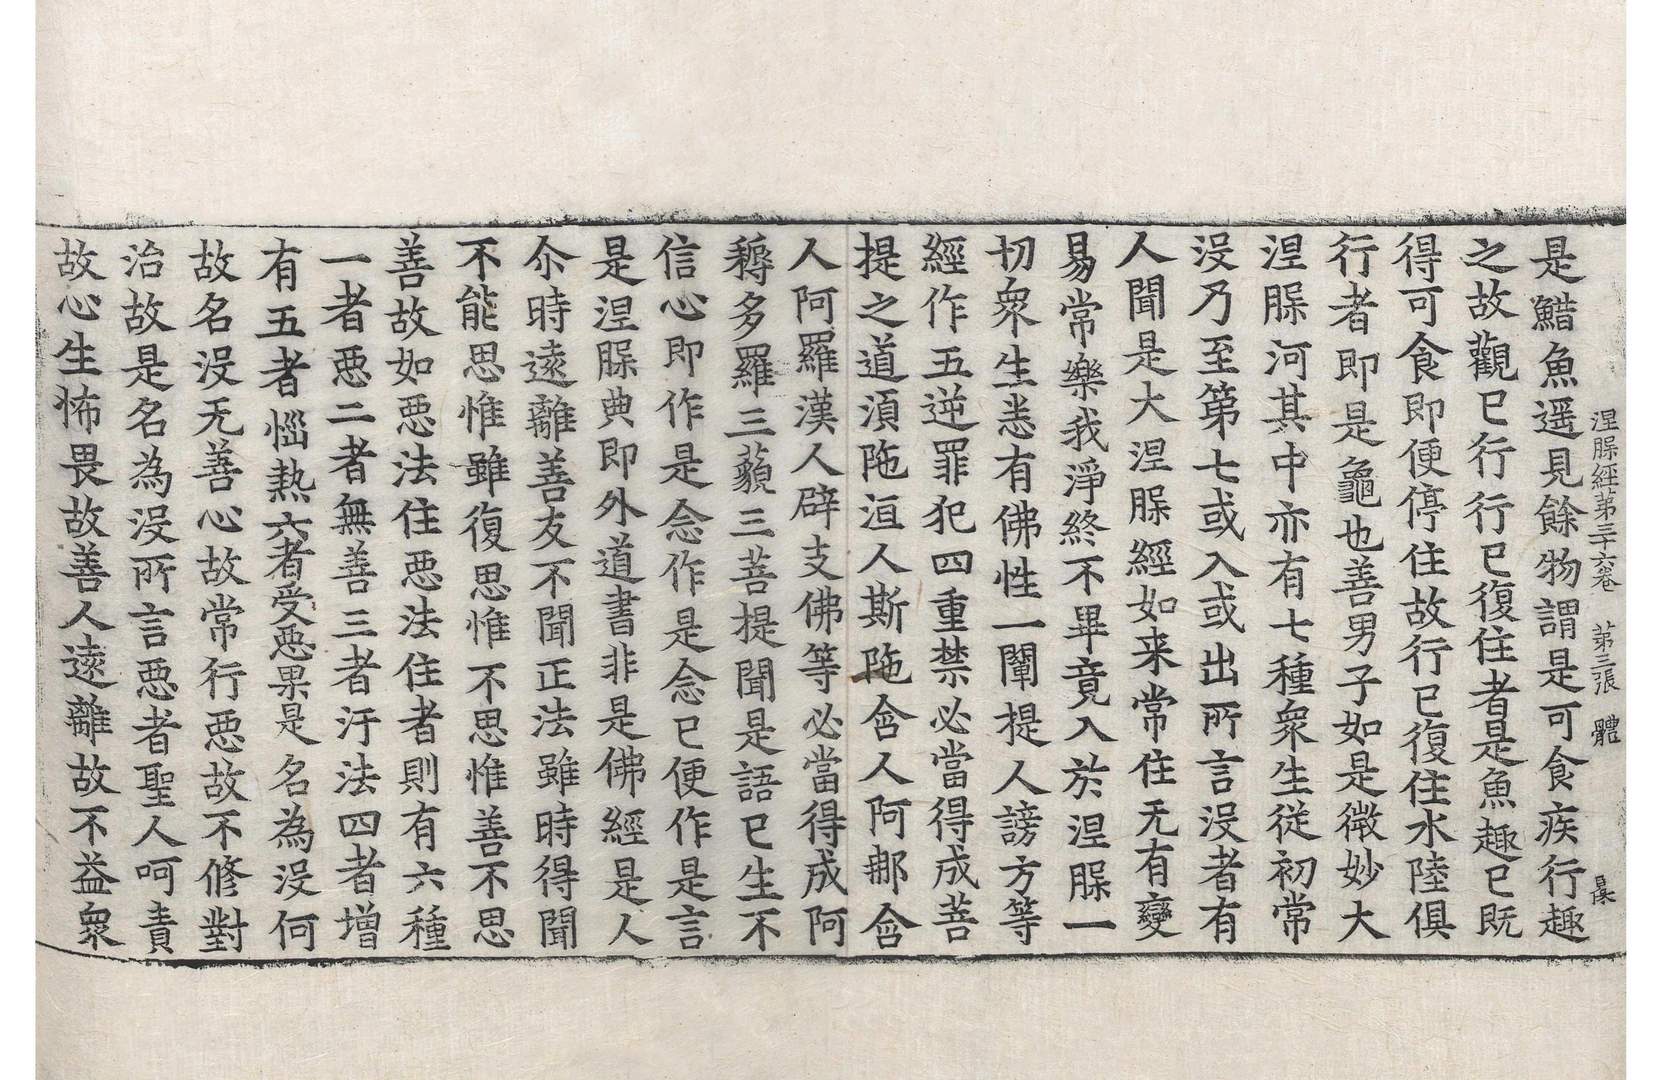 涅槃經第三十六卷 第三張 體
是䱜魚遥見餘物謂是可食疾行趣
之故觀已行行已復住者是魚趣已既
得可食即便停住故行已復住水陸俱
行者即是龜也善男子如是微妙大
涅槃河其中亦有七種衆生從初常
没乃至第七或入或出所言没者有
人聞是大涅槃經如来常住无有變
易常樂我淨終不畢竟入於涅槃一
切衆生悉有佛性一闡提人謗方等
經作五逆罪犯四重禁必當得成菩
提之道湏陁洹人斯陁含人阿那含
人阿羅漢人辟支佛等必當得成阿
耨多羅三藐三菩提聞是語已生不
信心即作是念作是念已便作是言
是涅槃典即外道書非是佛經是人
尒時遠離善友不聞正法雖時得聞
不能思惟雖復思惟不思惟善不思
善故如惡法住惡法住者則有六種
一者惡二者無善三者汙法四者增
有五者惱熱六者受惡果是名為没何
故名没无善心故常行惡故不修對
治故是名為没所言惡者聖人呵責
故心生怖畏故善人遠離故不益衆